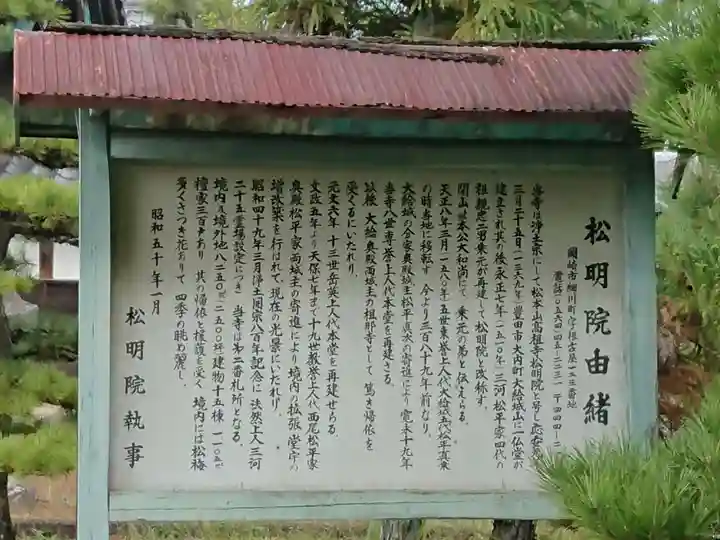 松明院由緒
岡崎市細川町字根古屋一三番地
電話〇五六四-四五-二二三一 〒四四四-
当寺は浄土宗にして松本山高祖寺松明院と号し応安
三月二十五日(一三六九年)豊田市大内町大給城山に一仏堂が
建立され其の後永正七年(一五一〇年)三河松平家四代の
祖親忠二男乗元が再建して松明院と改称す
開山は本公大和尚にて乗元の弟と伝えらる
天正八年三月(一五八〇年)五世東誉上人代大給城五代松平真乗
の時当地に移転す 今より三百八十九年前なり
大給城の分家奥殿城主松平真次の寄進により寛永十九年
当寺八世専誉上人代本堂を再建さる
以後 大給 奥殿両城主の祖那寺として 篤き帰依を
受くるにいたれり
元文六年 十三世岳英上人代本堂を再建せらる
文政五年より天保七年まで十九世教誉上人代西尾松平家
奥殿松平家両城主の寄進により境内の拡張堂宇の
増改築を行はれて現在の光景にいたれり
昭和四十九年三月浄土開宗八百年記念に 法然上人三河
二十五霊場設定につき 当寺は第二番札所となる
境内及境外地八二五〇㎡二五〇〇坪建物十五棟
檀家三百戸あり 其の帰依と援護を受く 境内には松梅
多くさつき花ありて 四季の眺め麗し
昭和五十年一月
松明院執事